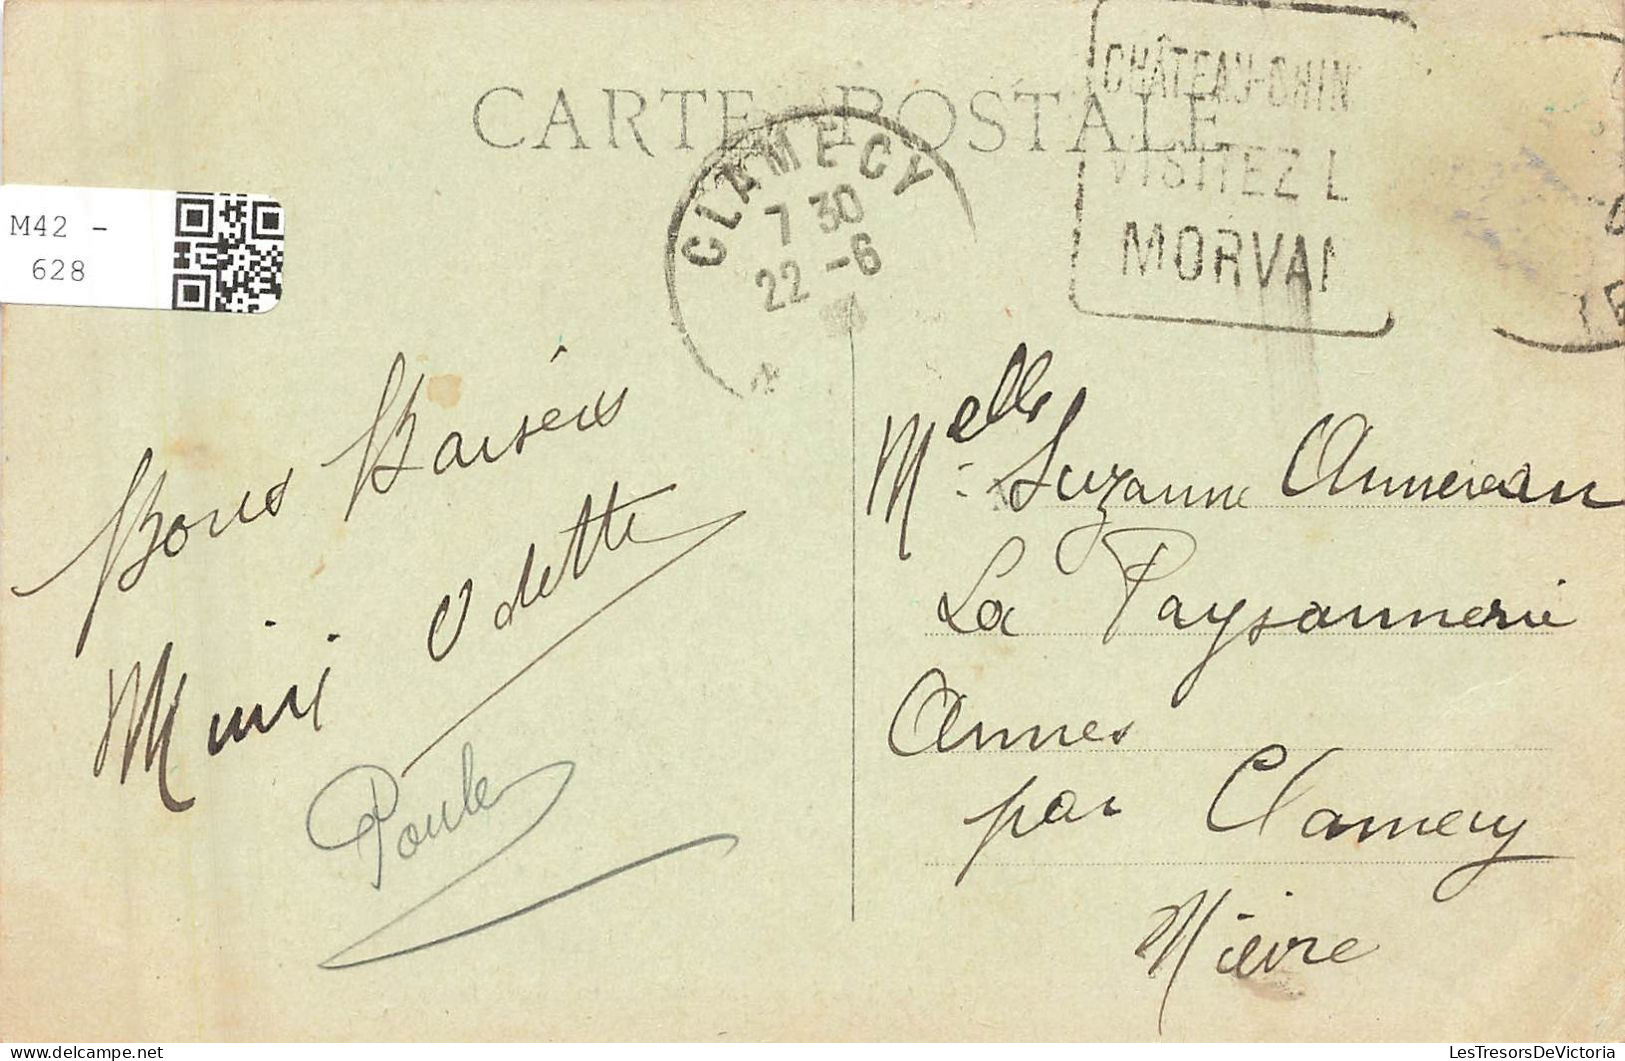 CARTE POSTALE
CHÂTEAU-CHIN
VISITEZ L
MORVAN
CLAMECY
7 30
22 -6
M42 -
628
Bons Baisers
Odette
Mimi
Poule
Melle Suzanne Annereau
La Paysannerie
Armes
par Clamecy
Nièvre
LesTresorsDeVictoria